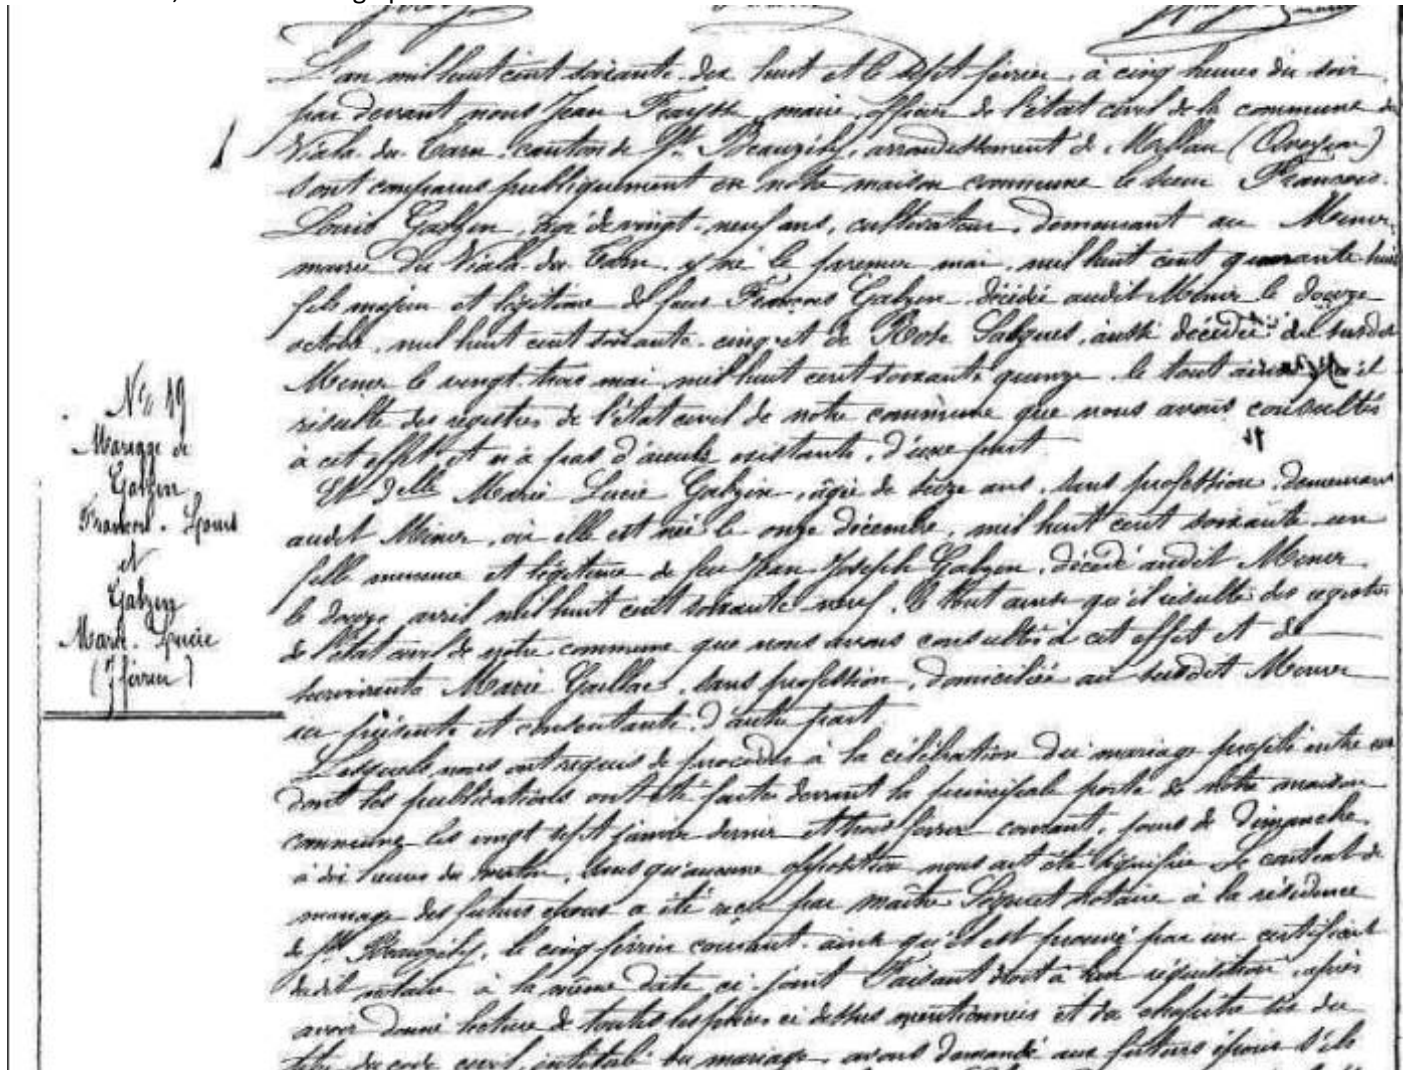 L'an mil huit cent soixante-dix huit et le sept février, à cinq heures du soir
par devant nous Jean Fraysse maire, officier de l'état civil de la commune du
Viala-du-Tarn, canton de St Beauzély, arrondissement de Millau (Aveyron)
sont comparus publiquement en notre maison commune le sieur François-
Louis Galzin, âgé de vingt-neuf ans, cultivateur, demeurant au Minier,
mairie du Viala-du-Tarn, y né le premier mai, mil huit cent quarante-huit
fils majeur et légitime de feus François Galzin, décédé audit Minier le douze
octobre, mil huit cent soixante-cinq et de Rose Salgues, aussi décédée au susdit
Minier le vingt-trois mai mil huit cent soixante quinze, le tout ainsi qu'il
résulte des registres de l'état civil de notre commune que nous avons consultés
à cet effet et n'a pas d'aïeuls existants, d'une part
Et Delle Marie Lucie Galzin, âgée de seize ans, sans profession, demeurant
audit Minier, où elle est née le onze décembre, mil huit cent soixante-un
fille mineure et légitime de feu Jean Joseph Galzin, décédé audit Minier
le douze avril mil huit cent soixante-neuf, le tout ainsi qu'il résulte des registres
de l'état civil de notre commune que nous avons consultés à cet effet et de
survivante Marie Gaillac, sans profession, domiciliée au susdit Minier
ici présente et consentante, d'autre part
Lesquels nous ont requis de procéder à la célébration du mariage projeté entre eux
dont les publications ont été faites devant la principale porte de notre maison
commune les vingt sept janvier dernier et trois février courant, jours de dimanche,
à dix heures du matin, sans qu'aucune opposition nous ait été signifiée. Le contrat de
mariage des futurs époux a été reçu par maître notaire à la résidence
de St Beauzély, le cinq février courant, ainsi qu'il est prouvé par un certificat
dudit notaire à la même date ci-joint. Faisant droit à leur réquisition, après
avoir donné lecture de toutes les pièces ci dessus mentionnées et du chapitre six du
titre du code civil, intitulé du mariage, avons demandé aux futurs époux s'ils
No 19
Mariage de
Galzin
François-Louis
et
Galzin
Marie-Lucie
(7 février)